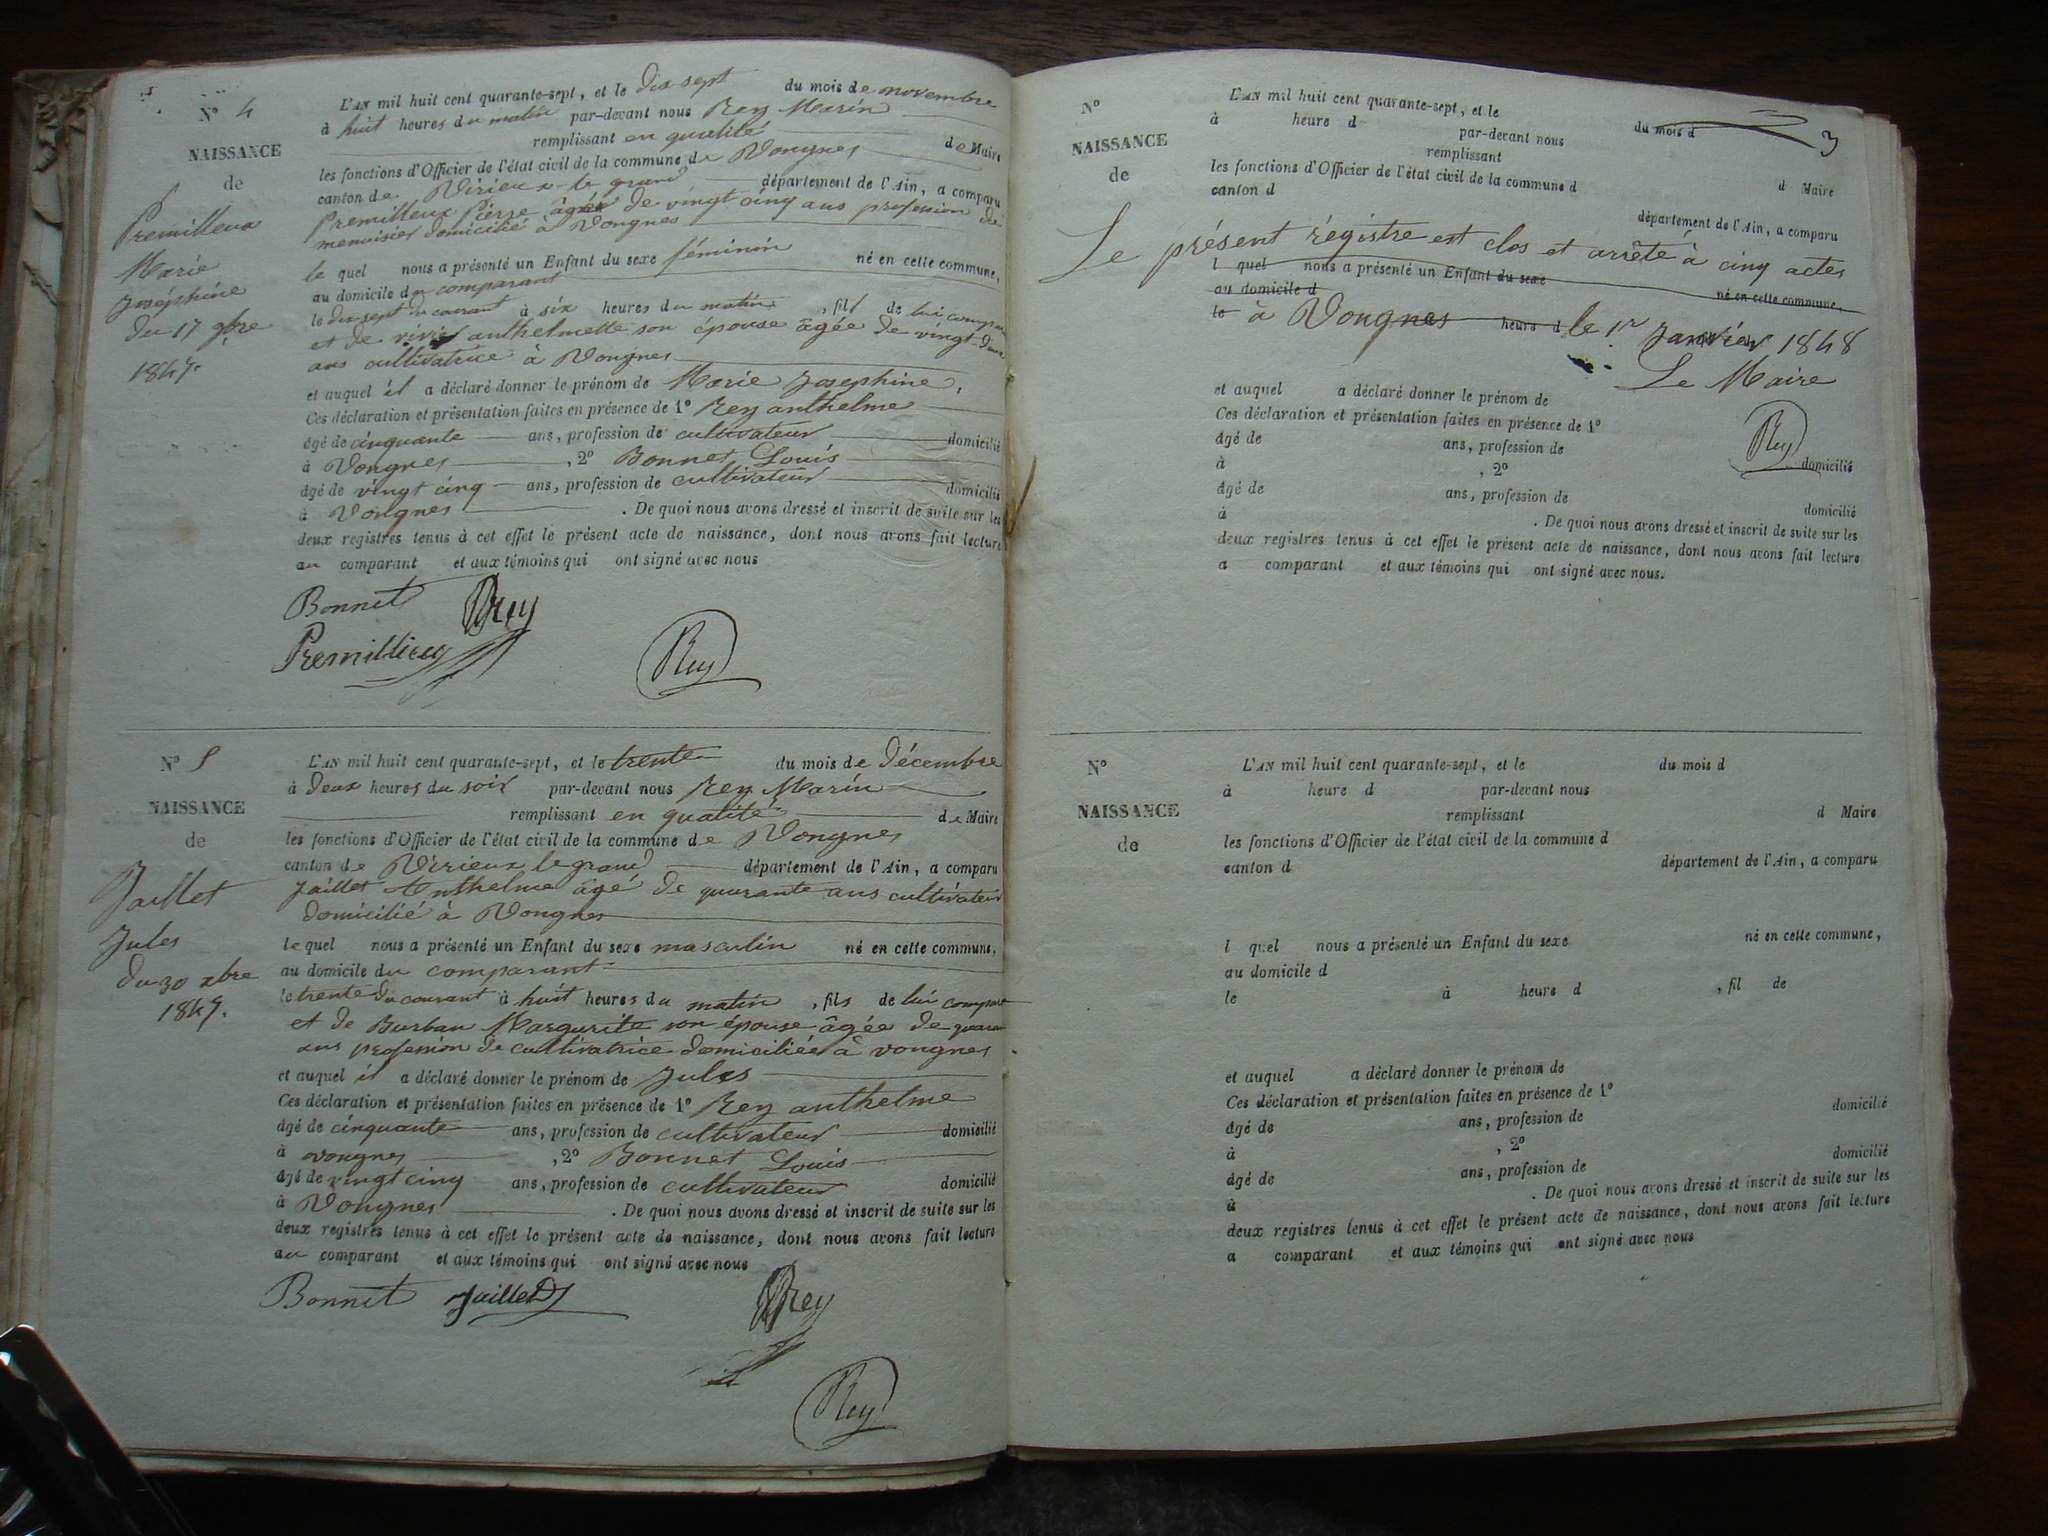 N° 4
NAISSANCE
de
Premilleux
Marie
Joséphine
du 17 9bre
1847.
L'AN mil huit cent quarante-sept, et le dix sept du mois de novembre
à huit heures du matin par-devant nous Rey Marin
remplissant en qualité de Maire
les fonctions d'Officier de l'état civil de la commune de Vongnes
canton de Virieux-le grand département de l'Ain, a comparu
Premilleux Pierre âgé de vingt cinq ans profession de
menuisier domicilié à Vongnes
le quel nous a présenté un Enfant du sexe féminin né en cette commune,
au domicile du comparant
le dix sept du courant à six heures du matin, fil de lui compar
et de anthelmette son épouse âgée de vingt-deux
ans cultivatrice à Vongnes
et auquel il a déclaré donner le prénom de Marie Josephine,
Ces déclaration et présentation faites en présence de 1° Rey anthelme
âgé de cinquante ans, profession de cultivateur domicilié
à Vongnes, 2° Bonnet Louis
âgé de vingt cinq ans, profession de cultivateur domicilié
à Vongnes. De quoi nous avons dressé et inscrit de suite sur les
deux registres tenus à cet effet le présent acte de naissance, dont nous avons fait lecture
au comparant et aux témoins qui ont signé avec nous
Bonnet Rey
Premillieux Rey
N° 5
NAISSANCE
de
Jaillet
Jules
du 30 xbre
1847.
L'AN mil huit cent quarante-sept, et le trente du mois de décembre
à deux heures du soir par-devant nous Rey Marin
remplissant en qualité de Maire
les fonctions d'Officier de l'état civil de la commune de Vongnes
canton de Virieux le grand département de l'Ain, a comparu
Jaillet Anthelme âgé de quarante ans cultivateur
domicilié à Vongnes
le quel nous a présenté un Enfant du sexe masculin né en cette commune,
au domicile du comparant
le trente du courant à huit heures du matin, fils de lui compar
et de Burban Margurite son épouse âgée de quaran
ans profession de cultivatrice domiciliée à vongnes
et auquel il a déclaré donner le prénom de Jules
Ces déclaration et présentation faites en présence de 1° Rey anthelme
âgé de cinquante ans, profession de cultivateur domicilié
à vongnes, 2° Bonnet Louis
âgé de vingt cinq ans, profession de cultivateur domicilié
à Vongnes. De quoi nous avons dressé et inscrit de suite sur les
deux registres tenus à cet effet le présent acte de naissance, dont nous avons fait lecture
au comparant et aux témoins qui ont signé avec nous
Bonnet Jaillet Rey
Rey
3
N°
NAISSANCE
de
L'AN mil huit cent quarante-sept, et le du mois d
à heure d par-devant nous
remplissant d Maire
les fonctions d'Officier de l'état civil de la commune d
canton d département de l'Ain, a comparu
Le présent régistre est clos et arrêté à cinq actes
l quel nous a présenté un Enfant du sexe né en cette commune,
au domicile d
le à Vongnes heure d le 1er Janvier 1848
Le Maire
et auquel a déclaré donner le prénom de
Ces déclaration et présentation faites en présence de 1°
Rey
âgé de ans, profession de domicilié
à , 2°
âgé de ans, profession de domicilié
à . De quoi nous avons dressé et inscrit de suite sur les
deux registres tenus à cet effet le présent acte de naissance, dont nous avons fait lecture
a comparant et aux témoins qui ont signé avec nous.
N°
NAISSANCE
de
L'AN mil huit cent quarante-sept, et le du mois d
à heure d par-devant nous
remplissant d Maire
les fonctions d'Officier de l'état civil de la commune d
canton d département de l'Ain, a comparu
l quel nous a présenté un Enfant du sexe né en cette commune,
au domicile d
le à heure d , fil de
et auquel a déclaré donner le prénom de
Ces déclaration et présentation faites en présence de 1°
âgé de ans, profession de domicilié
à , 2°
âgé de ans, profession de domicilié
à . De quoi nous avons dressé et inscrit de suite sur les
deux registres tenus à cet effet le présent acte de naissance, dont nous avons fait lecture
a comparant et aux témoins qui ont signé avec nous